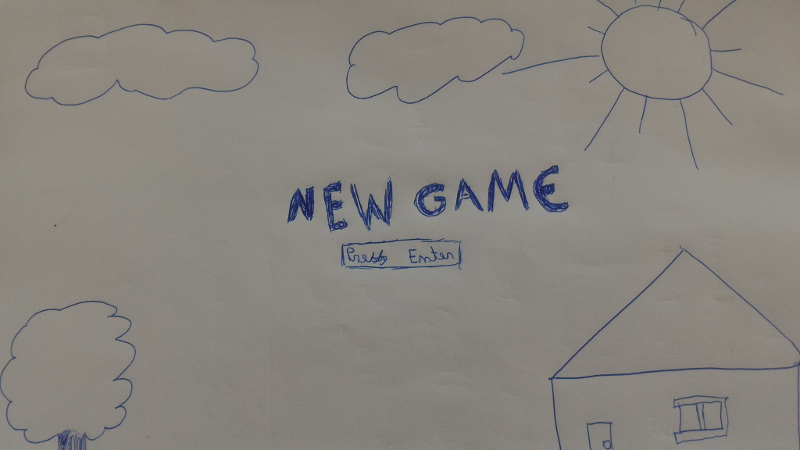 NEW GAME
Press Enter